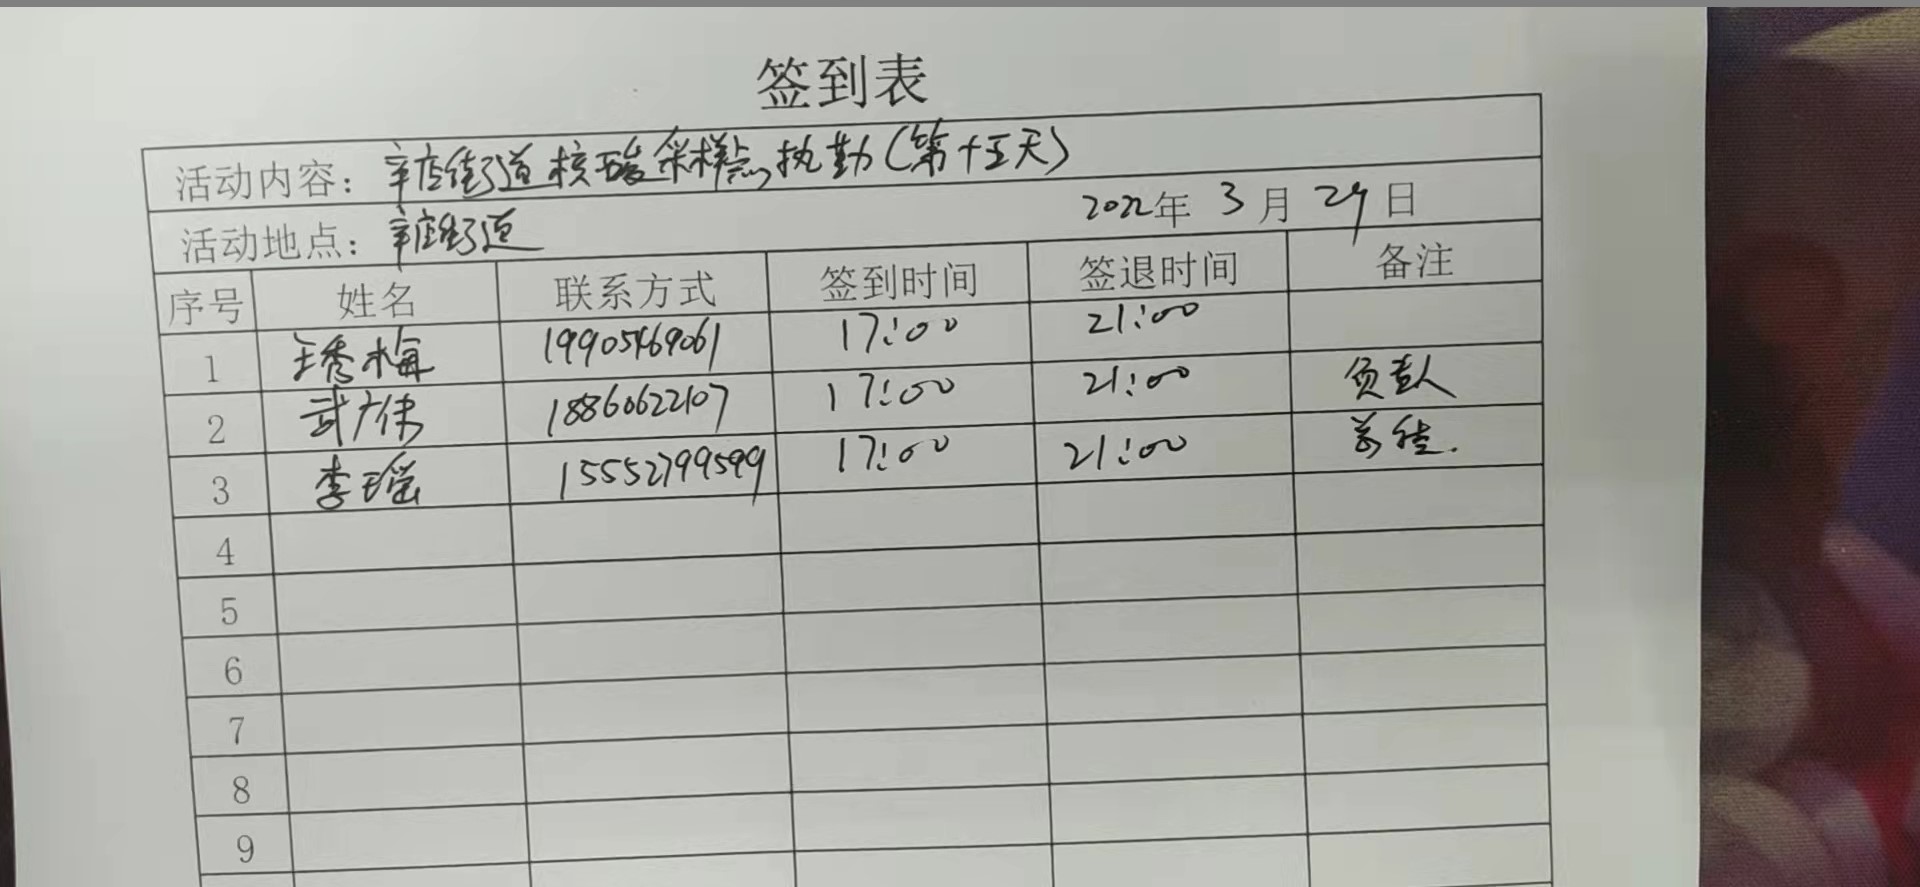 签到表
活动内容：辛店街道核酸采样点执勤（第十五天）
活动地点：辛店街道 2022年 3月 29日
序号 姓名 联系方式 签到时间 签退时间 备注
1 王秀梅 19905469061 17:00 21:00
2 武广伟 18860622107 17:00 21:00 负责人
3 李瑶 15552799599 17:00 21:00
4
5
6
7
8
9